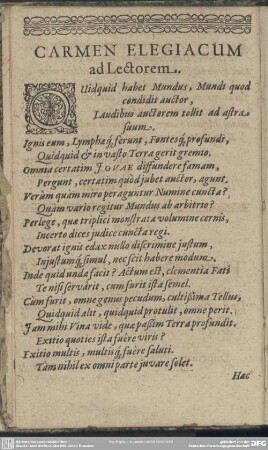 CARMEN ELEGIACUM
ad Lectorem.
QUidquid habet Mundus, Mundi quod
condidit auctor,
Laudibus auctorem tollit ad astra
suum.
Ignis eum, Lymphæq́, ferunt, Fontesq́, profundi,
Quidquid & in vasto Terra gerit gremio.
Omnia certatim JOVAE diffundere famam,
Pergunt, certatim quòd jubet aucter, agunt.
Verùm quàm miro peraguntur Numine cuncta?
Quàm vario regitur Mundus ab arbitrio?
Perlege, quæ triplici monstrata volumine cernis,
Incerto dices judice cuncta regi.
Devorat ignis edax nullo discrimine justum,
Injustumq́, simul, nec scit habere modum.
Inde quid unda facit? Actum est, clementia Fati
Te nisi servârit, cum furit ista semel.
Cum furit, omne genus pecudum, cultißima Tellus,
Quidquid alit, quidquid protulit, omne perit.
Jam mihi Vina vide, quæ paßim Terra profundit.
Exitio quoties ista fuêre virîs?
Exitio multis, multisq́, fuêre saluti.
Tam nihil ex omni parte juvare solet.
Hac